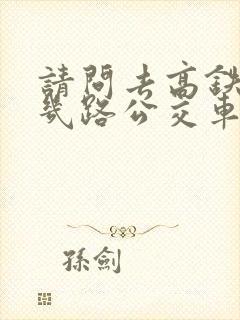 請問去高鉄
幾路公交車
孫劍